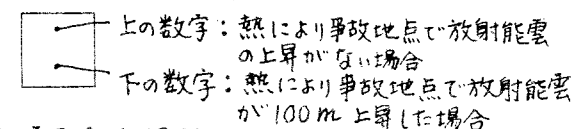 上の数字：熱により事故地点で放射能雲
の上昇がない場合
下の数字：熱により事故地点で放射能雲
が100m上昇した場合